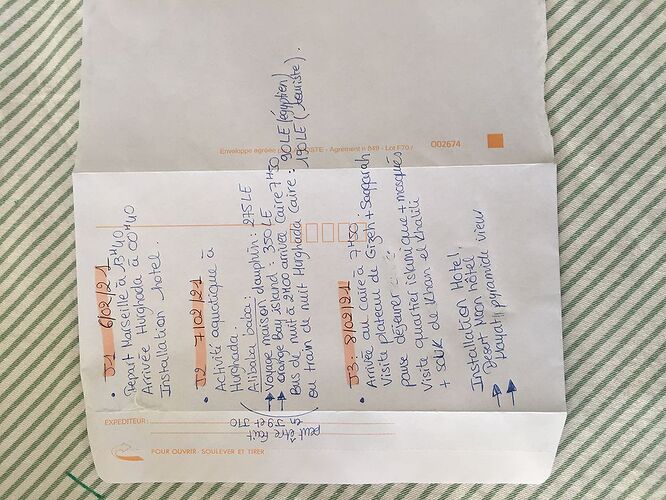 J1 6/02/21
Départ Marseille à 13H40
Arrivée Hurghada à 00H40
Installation hotel.
J2 7/02/21
Activité aquatique à
Hurghada.
Alibaba baba:
Voyage maison dauphin: 275LE
Orange Bay island: 350 LE
Bus de nuit à 2H00 arrivée Caire 7H30
ou train de nuit Hurghada Caire: 90LE (égyptien)
190LE (touriste).
peut être fait
en J9 et J10
J3: 8/02/21
Arrivée au Caire à 7H30:
Visite plateau de Gizeh + Saqqarah
pause déjeuner
Visite quartier islamique + mosquées
+ souk de Khan el Khalili
Installation Hotel.
Desert Moon hôtel
Hayat pyramide view
EXPEDITEUR:
POUR OUVRIR · SOULEVER ET TIRER
Enveloppe agréée - Agrément n 849 - Lot F70 /
002674